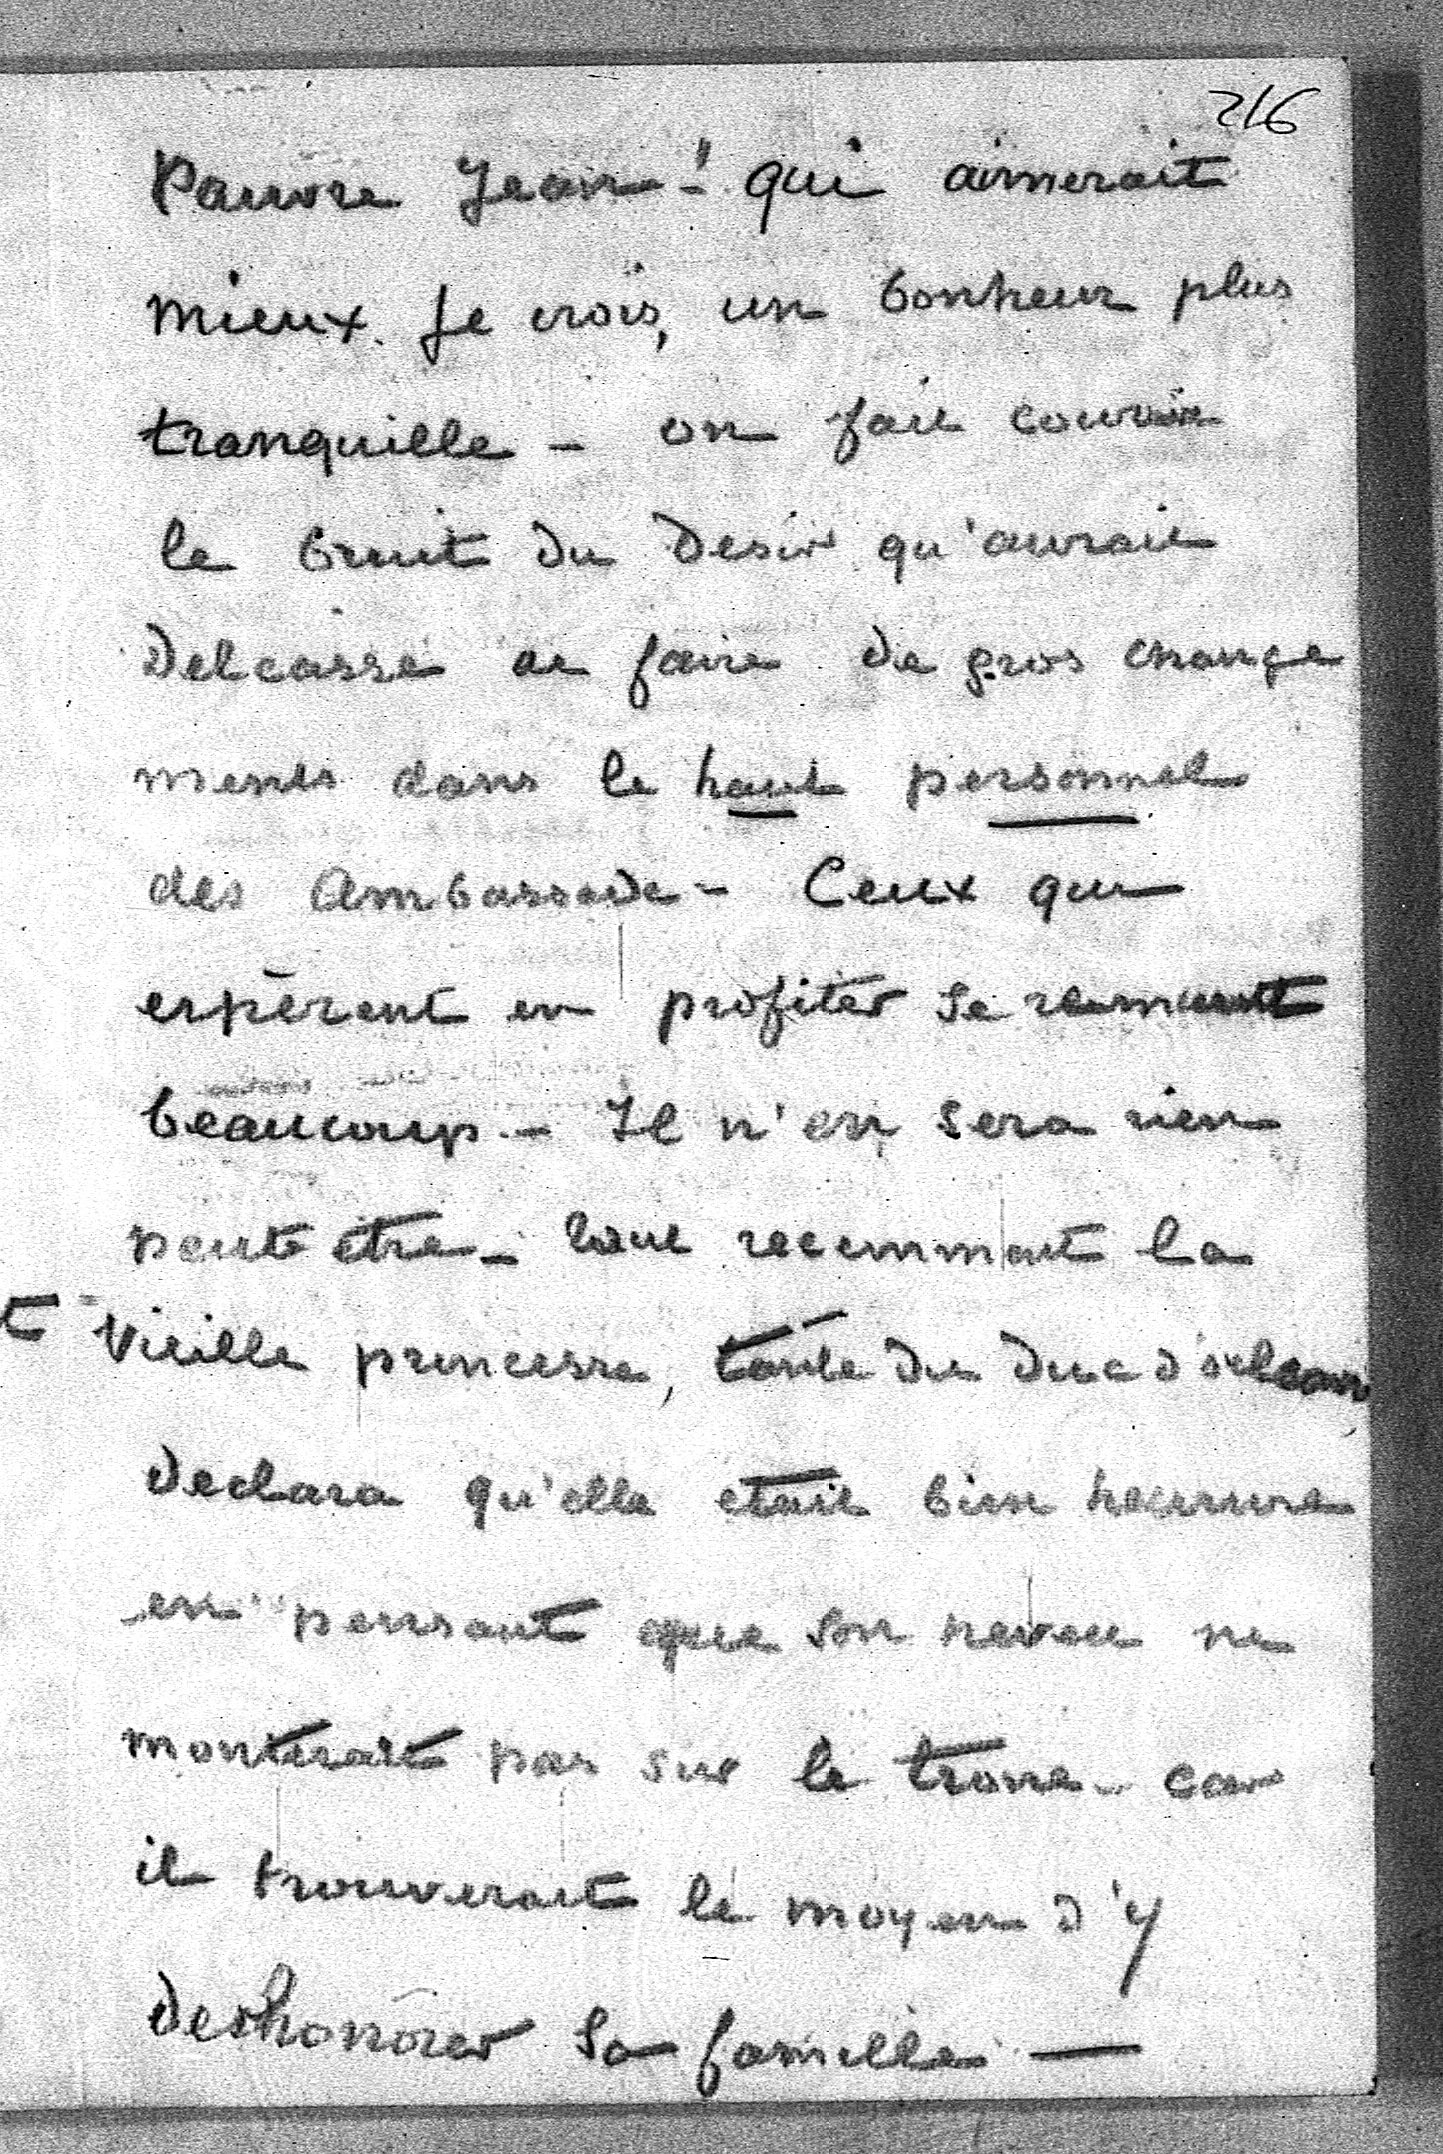 216
Pauvre Jean ! qui aimerait
mieux. Je crois, un bonheur plus
tranquille - on fait courir
le bruit du Desir qu'aurait
Delcassé de faire de gros change
ments dans le haut personnel
des Ambassade - Ceux qui
espèrent en profiter se remuent
beaucoup - Il n'en sera rien
peut être - tout recemment la
vieille princesse, tante du Duc d'orleans
declara qu'elle etait bien heureuse
en pensant que son neveu ne
monterait pas sur le trone - car
il trouverait le moyen d'y
deshonorer sa famille —